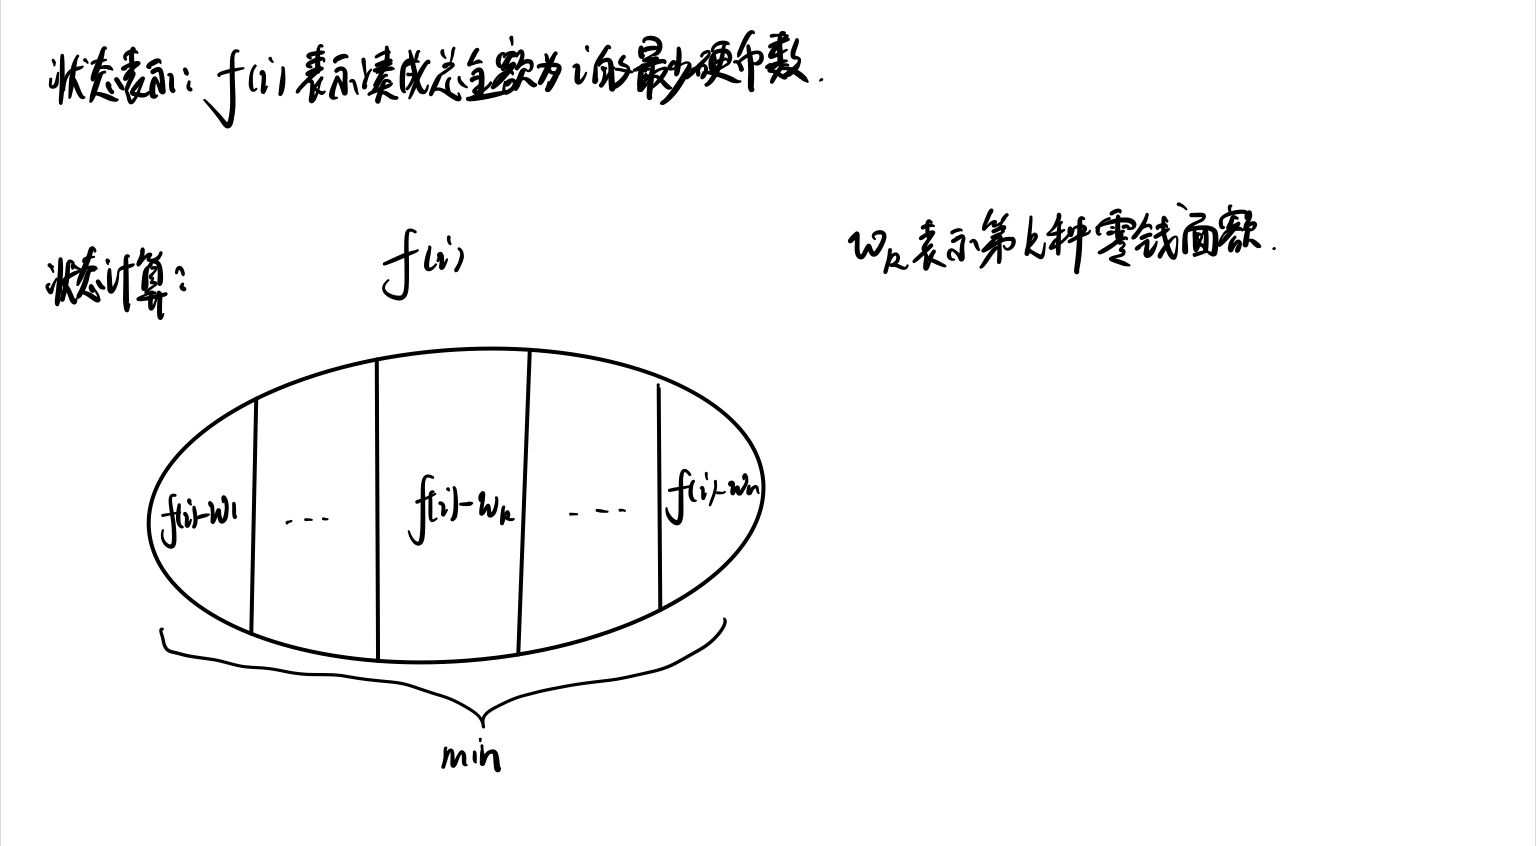 状态表示: f(i) 表示凑成总金额为i的最少硬币数.
状态计算:
f(i)
wk表示第k种零钱面额.
f(i)-w1
...
f(i)-wk
...
f(i)-wn
min